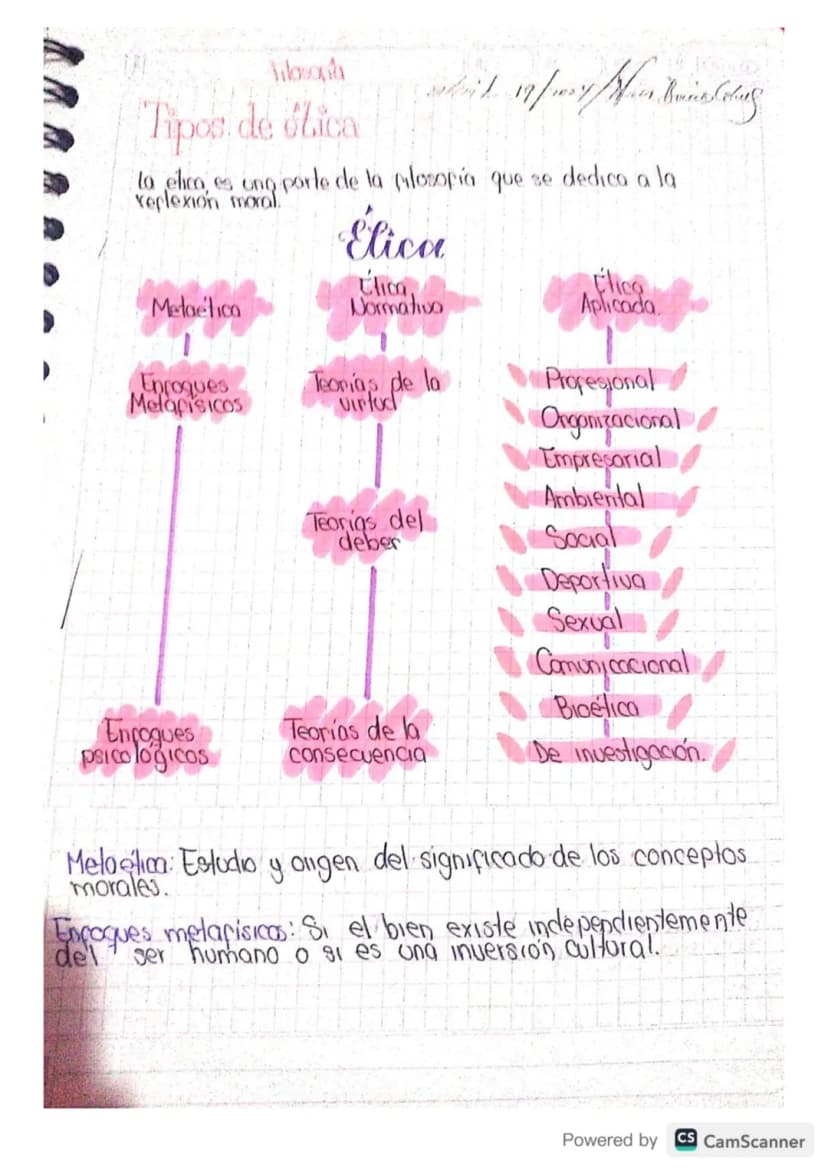 Filosofía
19/
Tipos de ética
la etica, es una parte de la filosofía que se dedica a la
reflexión moral.
Ética
Metaética
Ética
Normativa
Ética
Aplicada.
Enfoques
Metafísicos
Enfoques
psicológicos
Teorías de la
virtud
Teorías del
deber
Teorías de la
consecuencia
Profesional
Organizacional
Empresarial
Ambiental
Social
Deportiva
Sexual
Comunicacional
Bioética
De investigación.
Metaética: Estudio y origen del significado de los conceptos
morales.
Enfoques metafísicos: Si el bien existe independientemente
del ser humano o si es una inversión cultural.
Powered by CS CamScanner